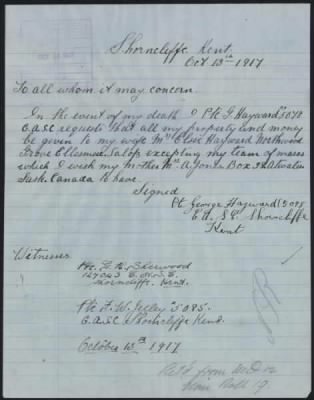 Shorncliffe Kent.
Oct 13th 1917
To all whom it may concern.
In the event of my death I Pte G Hayward 5078
C.A.S.C. requests that all my property and money
be given to my wife Mrs Elsie Hayward Northwood
Grove Ellesmere. Salop. excepting my team of mares
which I wish my mother Mrs A Jones Box 34 Atwater
Sask. Canada to have.
Signed
Pt George Hayward 5078
C.A.S.C. Shorncliffe
Kent
Witnesses
Pte. G. H. Sherwood
C.A.S.C.
Shorncliffe. Kent.
Pte F. W. 5085.
C.A.S.C Shorncliffe Kent.
October 13th 1917
Ret'd from